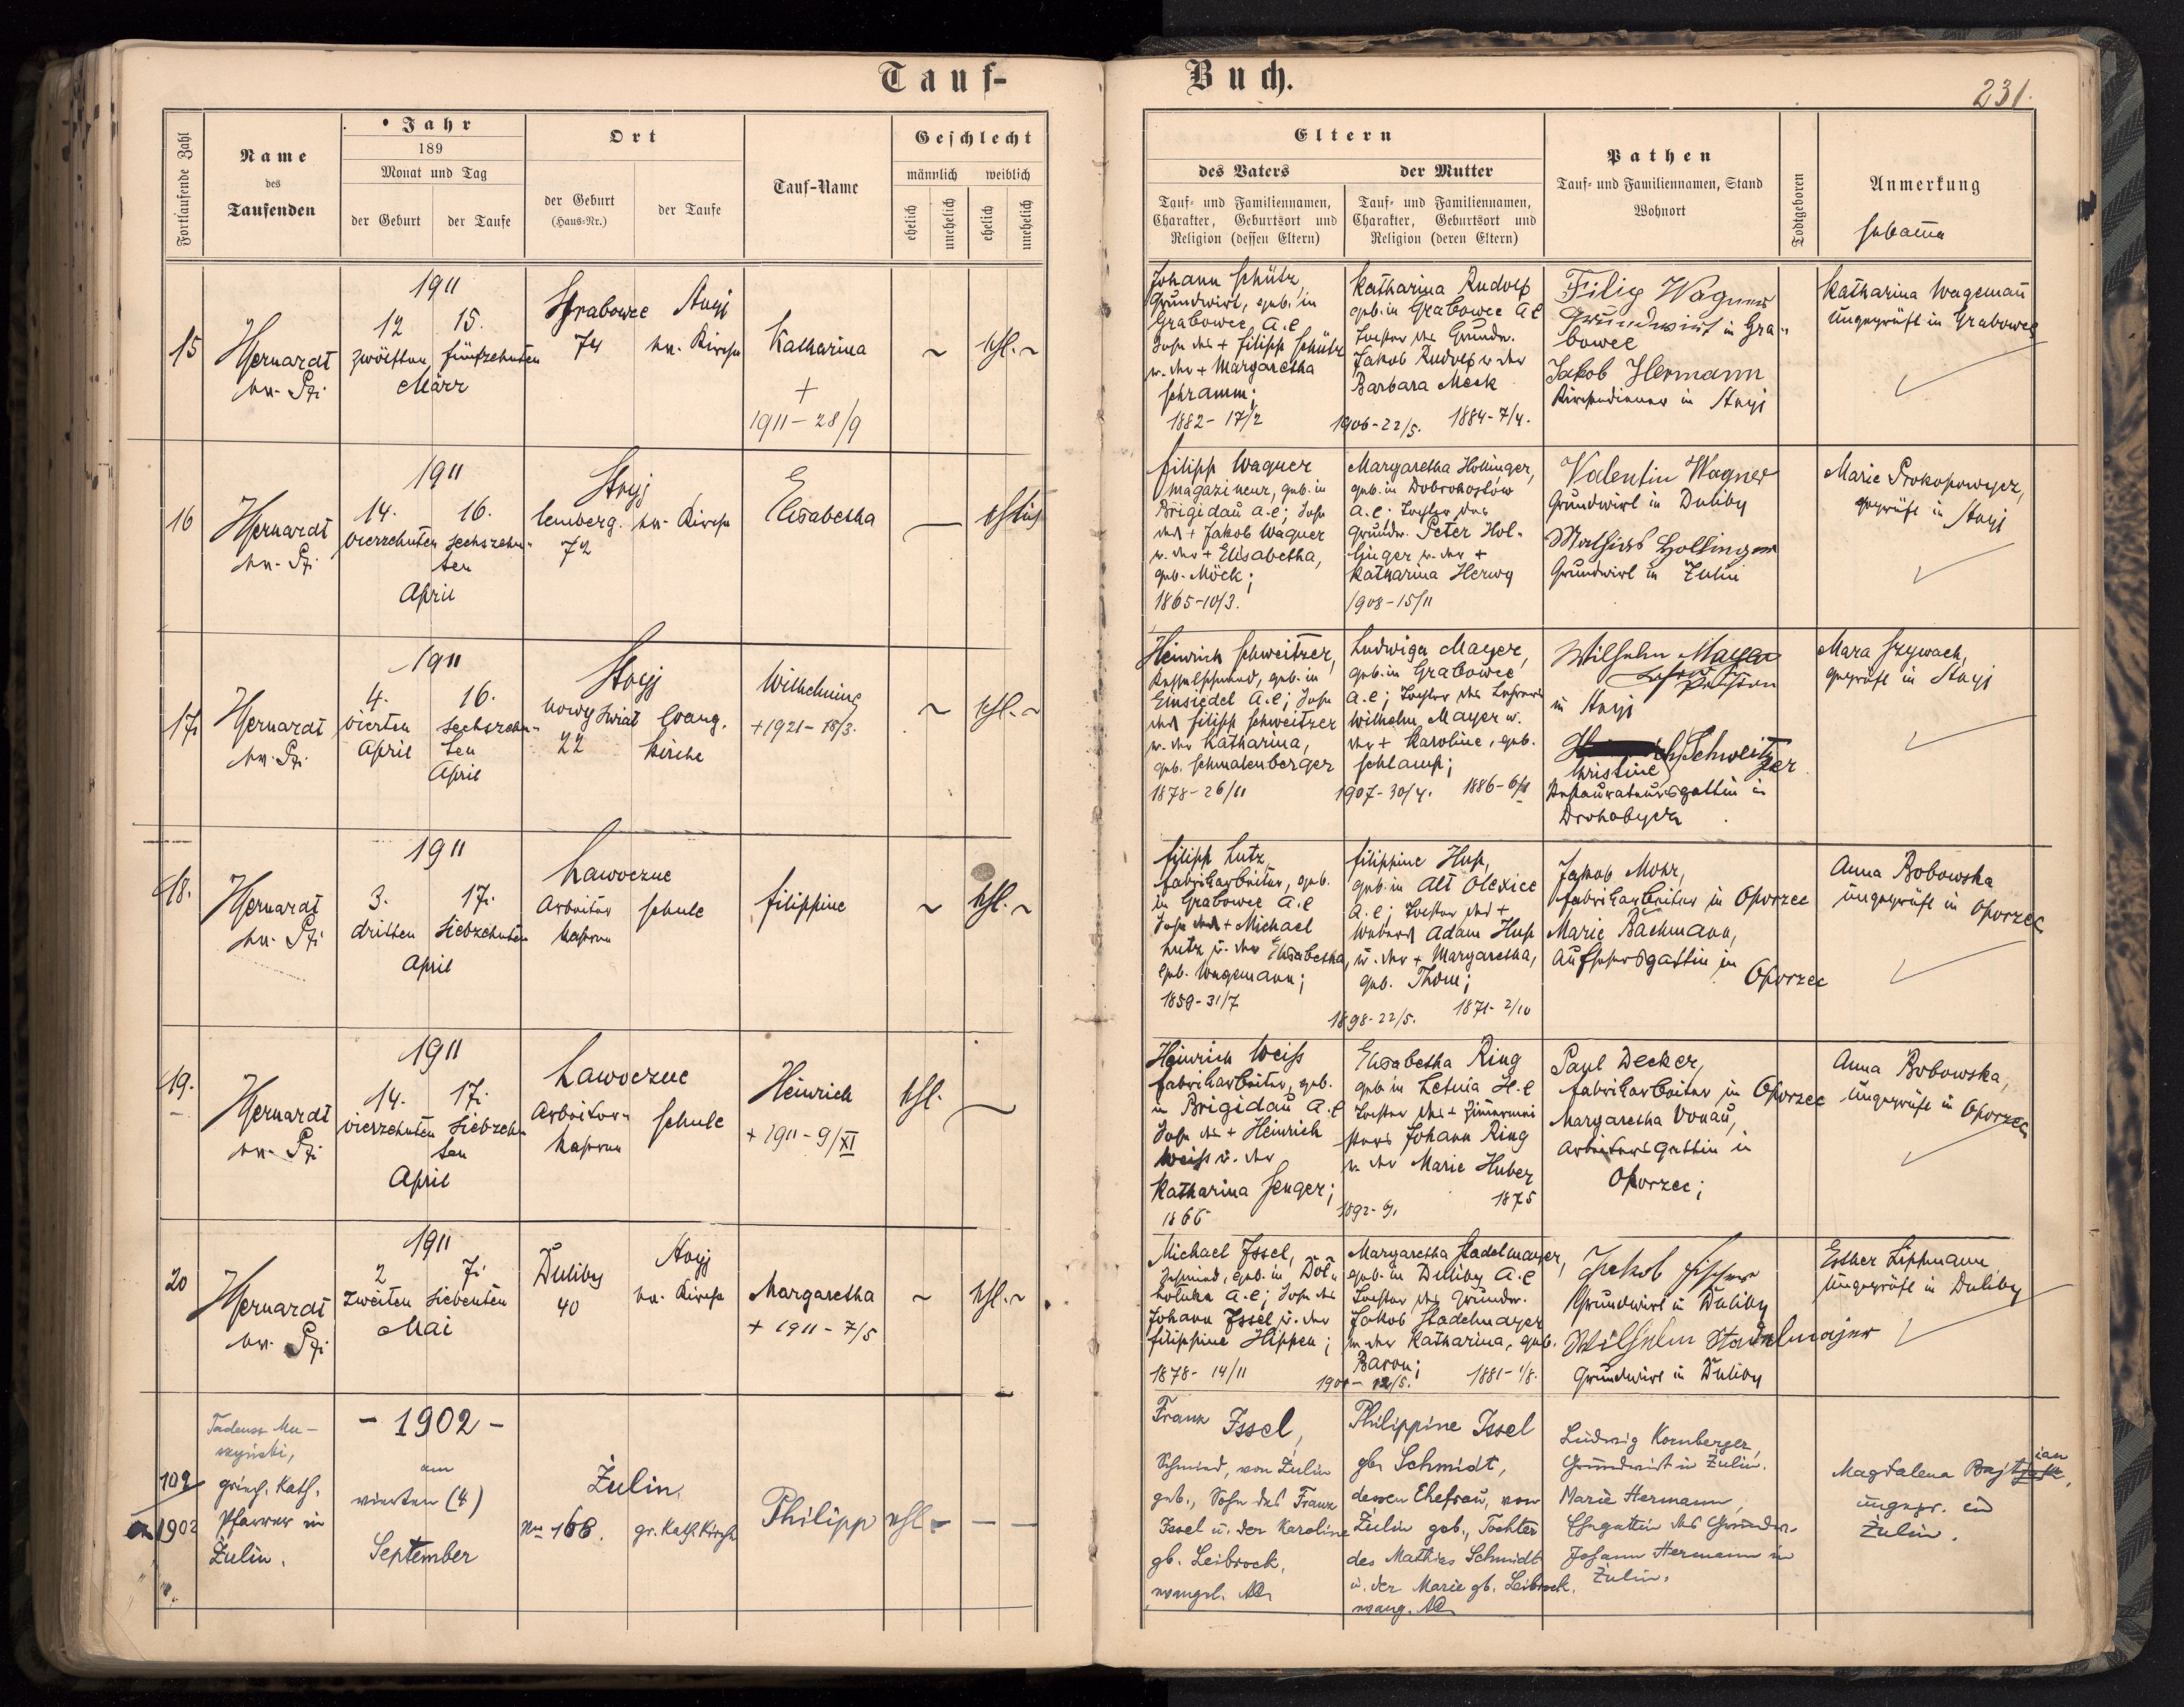 Tauf-
Buch.
231.
Fortlaufende Zahl
Name
des
Taufenden
Jahr
189
Monat und Tag
der Geburt
der Taufe
Ort
der Geburt
(Haus-Nr.)
der Taufe
Tauf-Name
Geschlecht
männlich
weiblich
ehelich
unehelich
ehelich
unehelich
Eltern
des Vaters
Tauf- und Familiennamen,
Charakter, Geburtsort und
Religion (dessen Eltern)
der Mutter
Tauf- und Familiennamen,
Charakter, Geburtsort und
Religion (deren Eltern)
Pathen
Tauf- und Familiennamen, Stand
Wohnort
Todtgeboren
Anmerkung
Hebamme
15
1911
12 15.
zwölften fünfzehnten
März
Grabowce
74
Stryj
ev. Kirche
Katharina
+
1911-28/9
ehl.
Johann Schütz,
Grundwirt, geb. in
Grabowce A.C
Sohn des + Filipp Schütz
u. der + Margaretha
Schramm;
1882-17/2
1906-22/5.
Katharina Rudolf
geb. in Grabowce AC
Tochter des Grundw.
Jakob Rudolf u. der
Barbara Meck
1884-7/4.
Filip Wagner
Grundwirt in Gra-
bowce
Jakob Hermann
Kirchendiener in Stryj
Katharina Wagemann
ungeprüft in Grabowce
16
1911
14. 16.
vierzehnten sechszehn-
ten
April
Stryj
Lemberg.
72
ev. Kirche
Elisabetha
ehlich
Filipp Wagner
Magazineur, geb. in
Brigidau A.C; Sohn
des + Jakob Wagner
u. der + Elisabetha,
geb. Möck;
1865-10/3.
Margaretha Hollinger,
geb. in Dobrohostów
A.C; Tochter des
Grundw. Peter Hol-
linger u. der +
Katharina Herwy
1908-15/11
Valentin Wagner
Grundwirt in Duliby
Mathias Hollinger
Grundwirt in Żulin
Marie Prokopowycz,
geprüft in Stryj
17
1911
4. 16.
vierten sechszehn-
April ten
April
Stryj
nowy świat
22
Evang.
Kirche
Wilhelmine
+1921-18/3.
ehl.
Heinrich Schweitzer,
geb. in
Einsiedel A.C; Sohn
des Filipp Schweitzer
u. der Katharina,
geb. Schmalenberger
1878-26/11
1907-30/4.
Ludwiga Mayer,
geb. in Grabowce
A.C; Tochter des Lehrers
Wilhelm Mayer u.
der + Karoline, geb.
Schlamp;
Wilhelm Mayer
in Stryj
Christine Schweitzer
Restaurateursgattin in
Drohobycz
Mara Szywach,
geprüft in Stryj
18.
1911
3. 17.
dritten siebzehnten
April
Lawoczne
Arbeiter
Kasern
Schule
Filippine
ehl.
Filipp Lutz
Fabriksarbeiter, geb.
in Grabowce A.C
Sohn des + Michael
Lutz u. der Elisabetha,
geb. Wagemann;
1859-31/7
1898-22/5.
Filippine Hup,
geb. in Alt Olexice
A.C; Tochter des +
Webers Adam Hup
u. der + Margaretha,
geb. Thom;
1871-2/10
Jakob Mohr,
Fabriksarbeiter in Oporzec
Marie Bachmann,
Aufsehersgattin in
Oporzec
Anna Bobowska
ungeprüft in Oporzec
19.
1911
14. 17.
vierzehnten siebzehn-
ten
April
Lawoczne
Arbeiter-
Kasern
Schule
Heinrich
+ 1911-9/XI
ehl.
Heinrich Weiss
Fabriksarbeiter, geb.
in Brigidau A.C
Sohn des + Heinrich
Weiss u. der
Katharina Senger;
1866
Elisabetha Ring
geb. in Letnia H.C
Tochter des + Zimmermei-
sters Johann Ring
u. der Marie Huber
1875
Paul Decker,
Fabriksarbeiter in Oporzec
Margaretha Vonau,
Arbeitersgattin in
Oporzec;
Anna Bobowska,
ungeprüft in Oporzec
20
1911
2 7.
zweiten siebenten
Mai
Duliby
40
Stryj
ev. Kirche
Margaretha
+ 1911-7/5
ehl.
Michael Issel,
Schmied, geb. in Dol-
holuka A.C; Sohn des
Johann Issel u. der
Filippine Hippen;
1878-14/11
Margaretha Stadelmayer,
geb. in Duliby A.C
Tochter des Grundw.
Jakob Stadelmayer
u. der Katharina, geb.
Baron;
1881-1/8.
Jakob Fischer
Grundwirt in Duliby
Wilhelm Stadelmajer
Grundwirt in Duliby
Esther Lippmann
ungeprüft in Duliby
109
ex 1902
Tadeusz Mu-
szyński,
griech. Kath.
Pfarrer in
Żulin.
-1902-
am
vierten (4)
September
Żulin,
Nro 168.
gr. Kath. Kirche
Philipp
ehl
Franz Issel,
Schmied, von Żulin
geb., Sohn des Franz
Issel u. der Karoline
gb. Leibrock,
evangel. AC
Philippine Issel
gb. Schmidt,
dessen Ehefrau, von
Żulin geb., Tochter
des Mathias Schmidt
u. der Marie gb. Leibrock,
evang. AC
Ludwig Kornberger,
Grundwirt in Żulin.
Marie Hermann,
Ehegattin des Grundw.
Johann Hermann in
Żulin.
Magdalena
ungepr. in
Żulin.